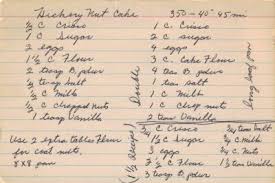 Hickory Nut Cake 350 - 40-45 min
½ C Crisco
1 C Sugar
2 eggs
1½ C Flour
2 teasp B. pdwr
½ teasp salt
½ C Milk
½ C chopped Nuts
1 teasp Vanilla
Use 2 extra tables Flour
for coal nuts.
8x8 pan
Double
1 C Crisco
2 C sugar
4 eggs
3 C. Cake Flour
4 tea B. pdwr
1 tea salt
1 C Milk
1 C chop nut
2 tea Vanilla
long loaf pan
(1½ Recipe)
¾ C Crisco
1½ C Sugar
3 eggs
3 tea B. pdwr
¾ tea salt
¾ C Milk
¾ C Nuts
1½ tea Vanilla